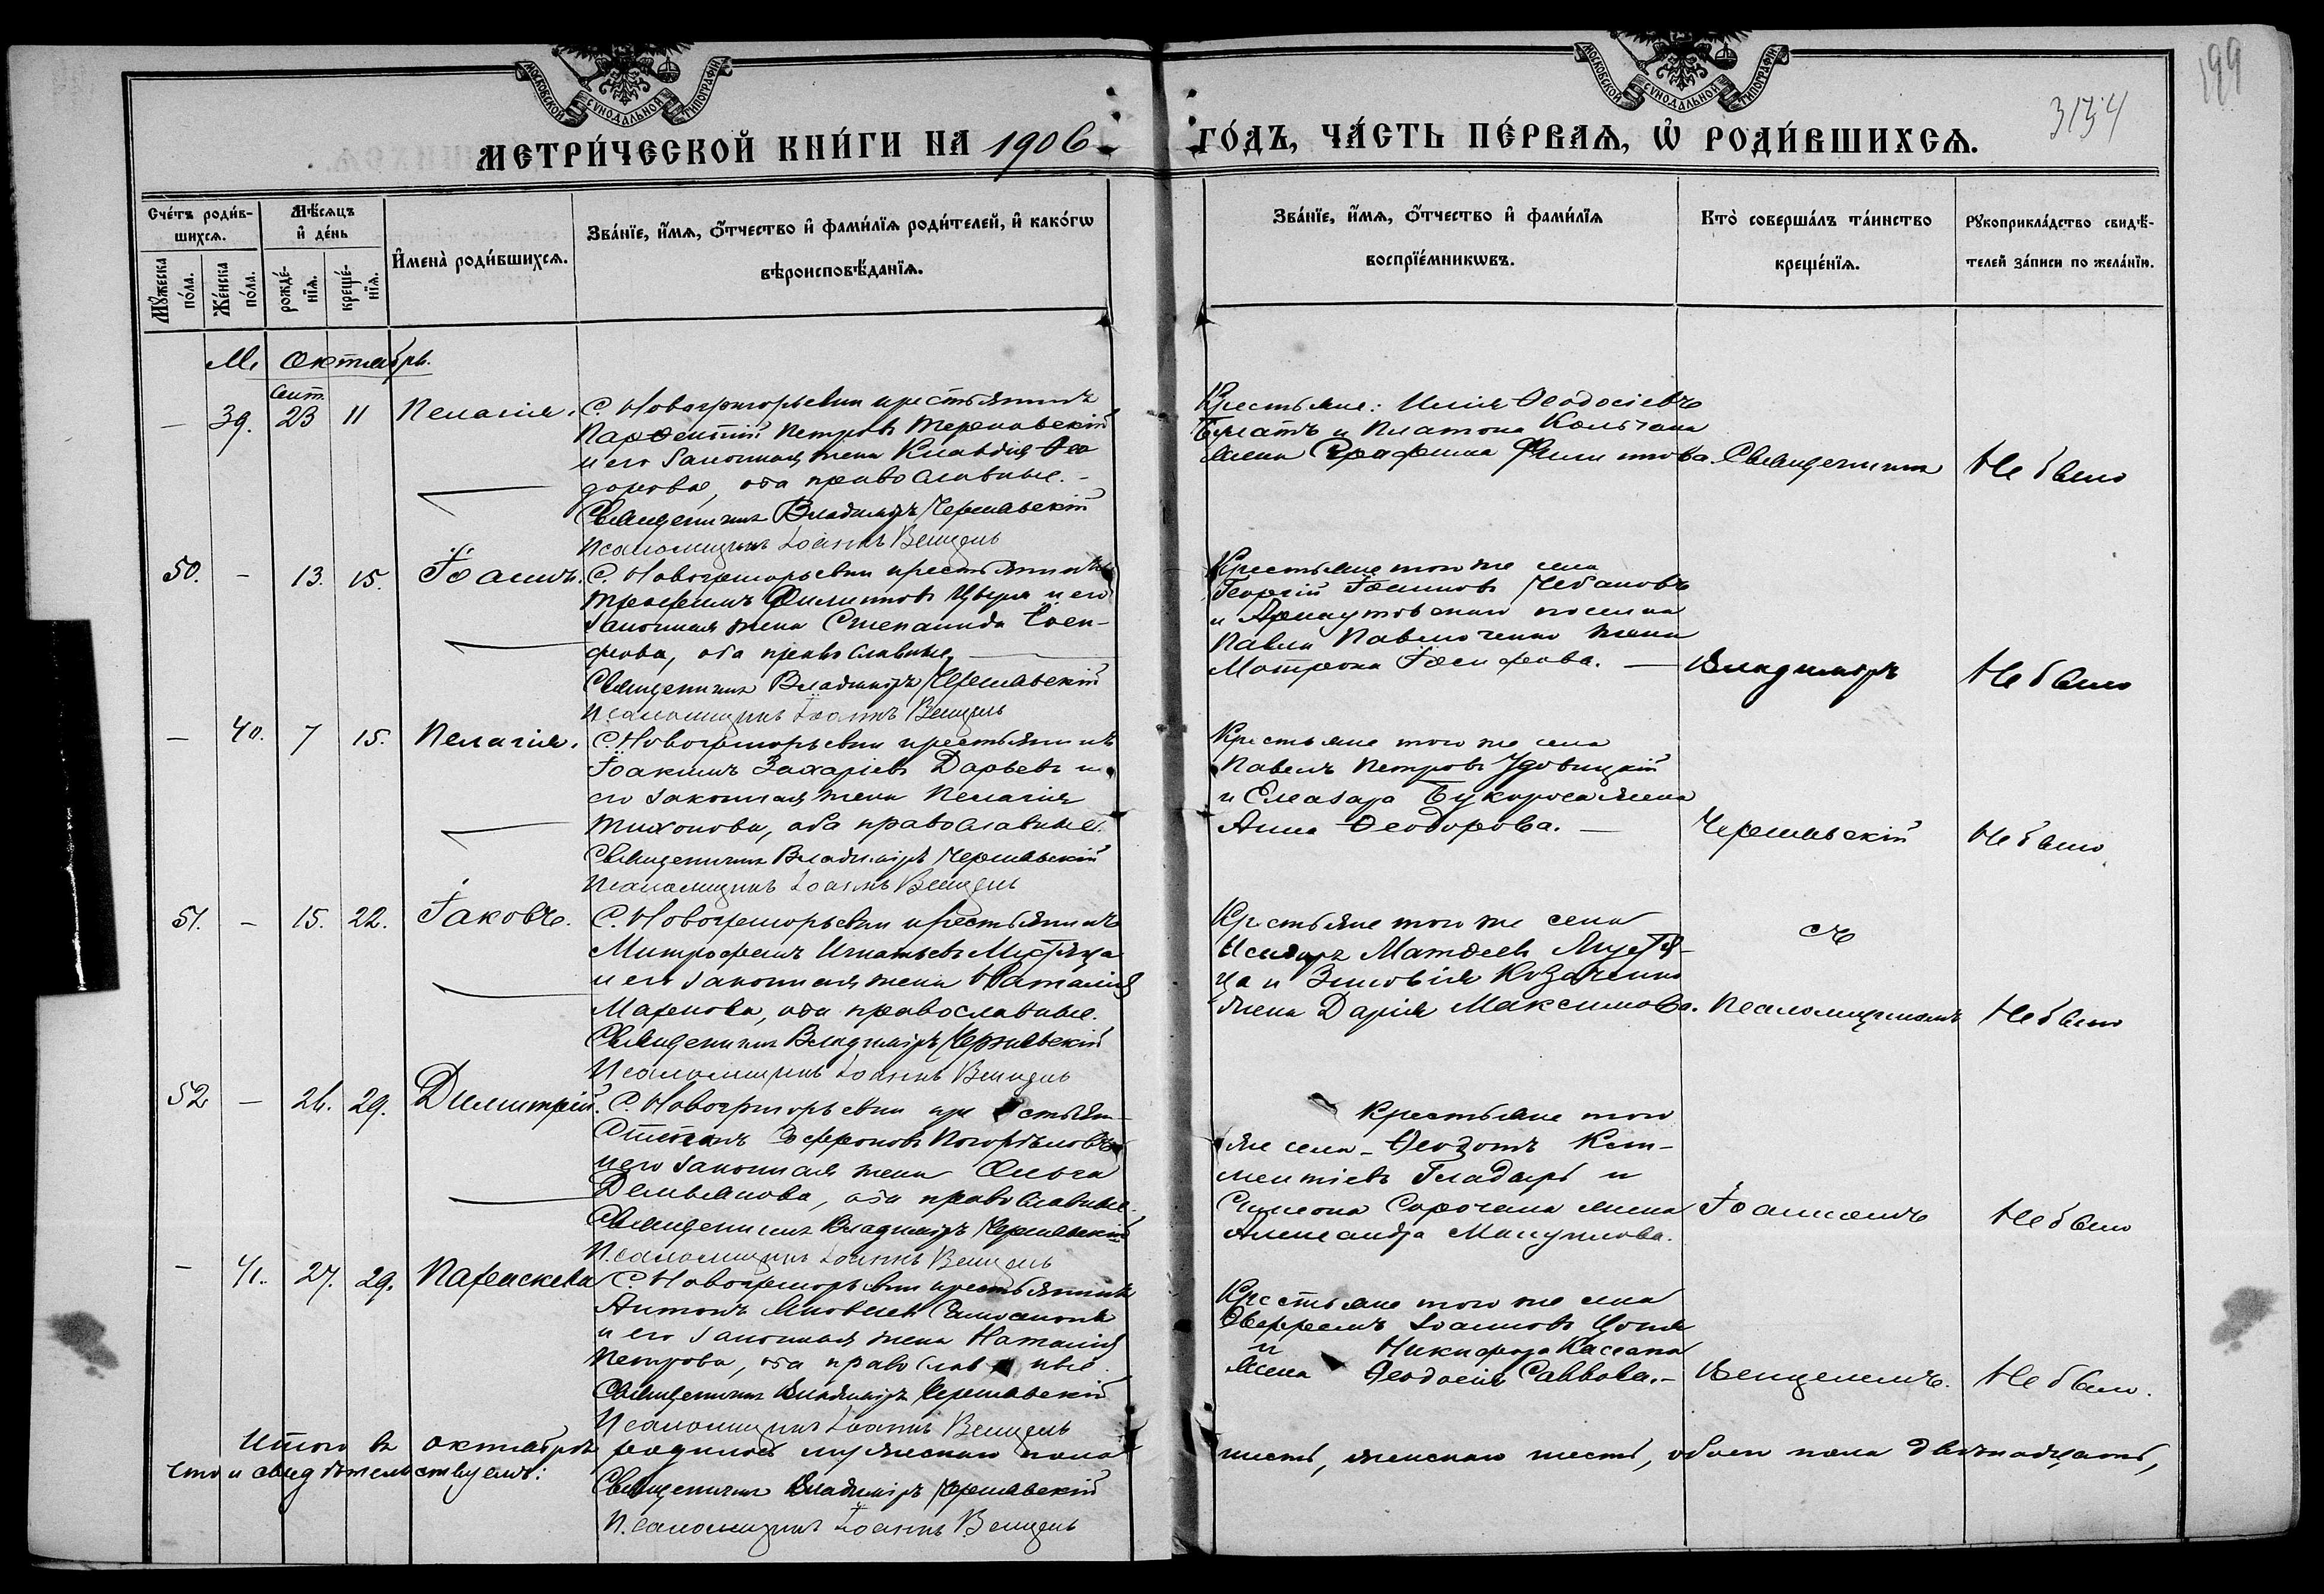 199
3134
МОСКОВСКОЙ СУНОДАЛЬНОЙ ТИПОГРАФИИ
МОСКОВСКОЙ СУНОДАЛЬНОЙ ТИПОГРАФИИ
МЕТРИ́ЧЕСКОЙ КНИ́ГИ НА 1906
ГО́ДЪ, ЧА́СТЬ ПЕ́РВАѦ, Ѡ҆ РОДИ́ВШИХСѦ.
Сче́тъ роди́в-
шихсѧ.
Мѣ́сѧцъ
и҆ де́нь
И҆мена̀ роди́вшихсѧ.
Зва́нїе, и҆́мѧ, ѻ҆́тчество и҆ фами́лїѧ роди́телей, и҆ како́гѡ
вѣроисповѣ́данїѧ.
Мꙋ́жеска
по́ла.
Же́нска
по́ла.
рожде́-
нїѧ.
креще́-
нїѧ.
Зва́нїе, и҆́мѧ, ѻ҆́тчество и҆ фами́лїѧ
воспрїе́мникѡвъ.
Кто̀ соверша́лъ та́инство
креще́нїѧ.
Рꙋкоприкла́дство свидѣ́-
телей за́писи по жела́нїю.
М. Октябрь.
Сент.
— 39. 23 11 Пелагія.
С. Новогригорьевки крестьянинъ
Парѳентій Петровъ Терновскій
и его законная жена Клавдія Ѳео
дорова, оба православные. –
Священникъ Владиміръ Чернявскій
Псаломщикъ Іоаннъ Венцель
Крестьяне: Илія Ѳеодосіевъ
и Платона
жена Филиппова.
Священникъ
Не было
50. – 13. 15. Іоаннъ.
С. Новогригорьевки крестьянинъ
Трофимъ Филипповъ и его
законная жена Степанида
оба православные.
Священникъ Владиміръ Чернявскій
Псаломщикъ Іоаннъ Венцель
Крестьяне того же села
Георгій Іоанновъ Чебановъ
и Арнаутовскаго поселка
Павла Павлюченко жена
Матрона Іосифова. —
Владиміръ
Не было
— 40. 7 15. Пелагія.
С. Новогригорьевки крестьянинъ
Іоакимъ Захаріевъ Дарьевъ и
его законная жена Пелагія
Тихонова, оба православные.
Священникъ Владиміръ Чернявскій
Псаломщикъ Іоаннъ Венцель
Крестьяне того же села
Павелъ Петровъ Удовицкій
и Елеазара жена
Анна Ѳеодорова. —
Чернявскій
Не было
51. – 15. 22. Іаковъ.
С. Новогригорьевки крестьянинъ
Митрофанъ Игнатьевъ
и его законная жена Наталія
Маркова, оба православные.
Священникъ Владиміръ Чернявскій
Псаломщикъ Іоаннъ Венцель
Крестьяне того же села
Матѳеевъ
и Зиновія Козаченко
жена Дарія Максимова.
съ
Псаломщикомъ
Не было
52 – 26. 29. Димитрій.
С. Новогригорьевки крестьян-
Погорѣловъ
и его законная жена Ольга
Демьянова, оба православные.
Священникъ Владиміръ Чернявскій
Псаломщикъ Іоаннъ Венцель
Крестьяне того
же села – Ѳеодотъ Кли-
ментіевъ Гладырь и
Симеона Сорочана жена
Александра Мануилова.
Іоанномъ
Не было
– 41. 27. 29. Параскева
С. Новогригорьевки крестьянинъ
Антонъ Яковлевъ
и его законная жена Наталія
Петрова, оба православные.
Священникъ Владиміръ Чернявскій
Псаломщикъ Іоаннъ Венцель
Крестьяне того же села
Іоанновъ
и Никифора
жена Ѳеодосія Саввова. –
Венцелемъ.
Не было.
Итого въ октябрѣ родилось мужескаго пола
шесть, женскаго шесть, обоего пола двѣнадцать,
что и свидѣтельствуемъ:
Священникъ Владиміръ Чернявскій
Псаломщикъ Іоаннъ Венцель